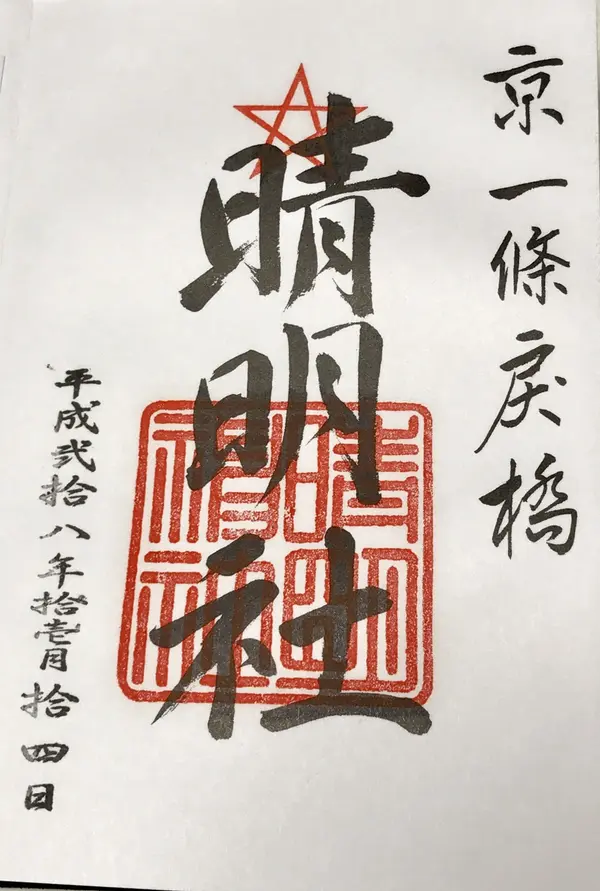 京一條戻橋
晴明社
晴明神社
平成弐拾八年拾壱月拾四日